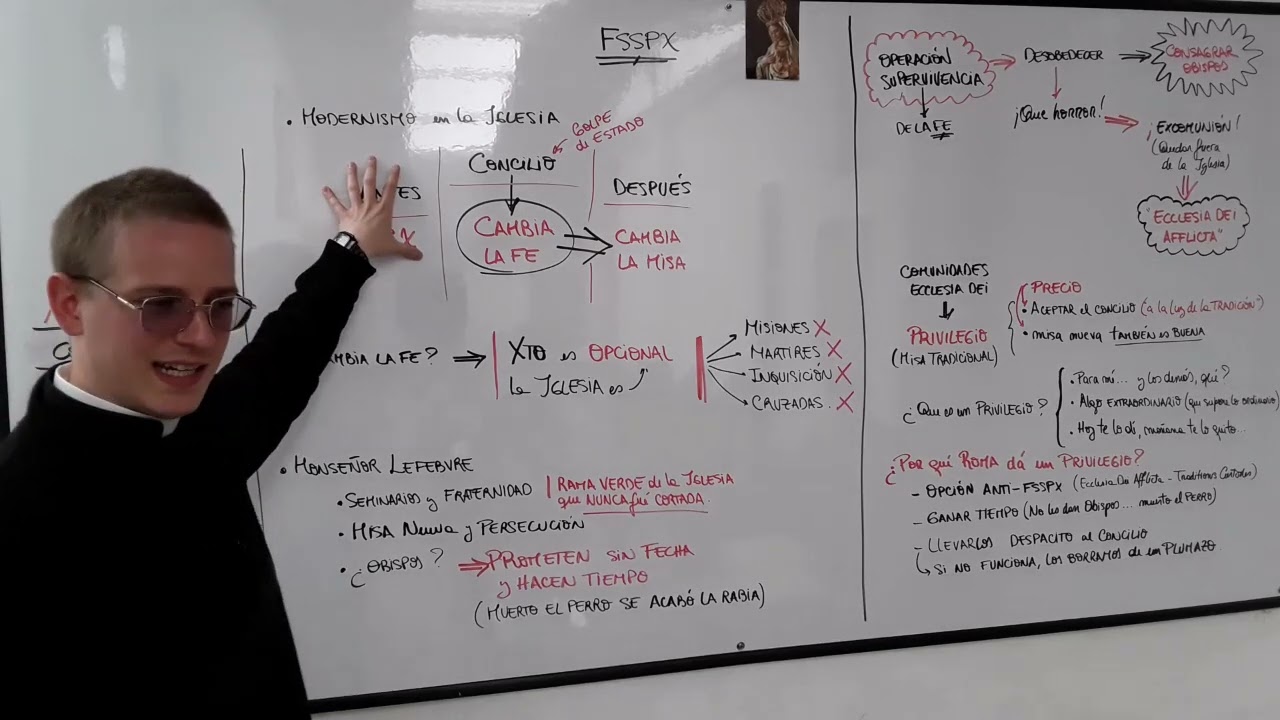 FSSPX
• MODERNISMO en la IGLESIA
GOLPE
de ESTADO
CONCILIO
DESPUÉS
CAMBIA
LA FE
CAMBIA
LA MISA
LA FE? ⇒
XTO es OPCIONAL
la IGLESIA es
MISIONES X
MARTIRES X
INQUISICIÓN X
CRUZADAS. X
• MONSEÑOR LEFEBVRE
• SEMINARIOS y FRATERNIDAD
RAMA VERDE de la IGLESIA
que NUNCA fué CORTADA.
• MISA Nueva y PERSECUCIÓN
• ¿OBISPOS? ⇒ PROMETEN SIN FECHA
y HACEN TIEMPO
(MUERTO EL PERRO SE ACABÓ LA RABIA)
OPERACIÓN
SUPERVIVENCIA
→ DESOBEDECER → CONSAGRAR
OBISPOS
DE LA FE
¡Que HORROR!
¡EXCOMUNIÓN!
(Quedar fuera
de la Iglesia)
"ECCLESIA DEI
AFFLICTA"
COMUNIDADES
ECCLESIA DEI
PRIVILEGIO
(MISA TRADICIONAL)
PRECIO
• ACEPTAR el CONCILIO ("a la luz de la TRADICIÓN")
• misa nueva TAMBIÉN es BUENA
¿Que es un PRIVILEGIO?
• Para mí... y los demás, qué?
• Algo EXTRAORDINARIO (que supere lo ordinario)
• Hoy te lo dí, mañana te lo quito...
¿Por qué ROMA dá un PRIVILEGIO?
- OPCIÓN ANTI-FSSPX (Ecclesia Dei Afflicta - Traditionis Custodes)
- GANAR TIEMPO (No les dan Obispos... muerto el PERRO)
- LLEVARLOS DESPACITO al CONCILIO
↳ SI NO FUNCIONA, LOS BORRAMOS de un PLUMAZO.